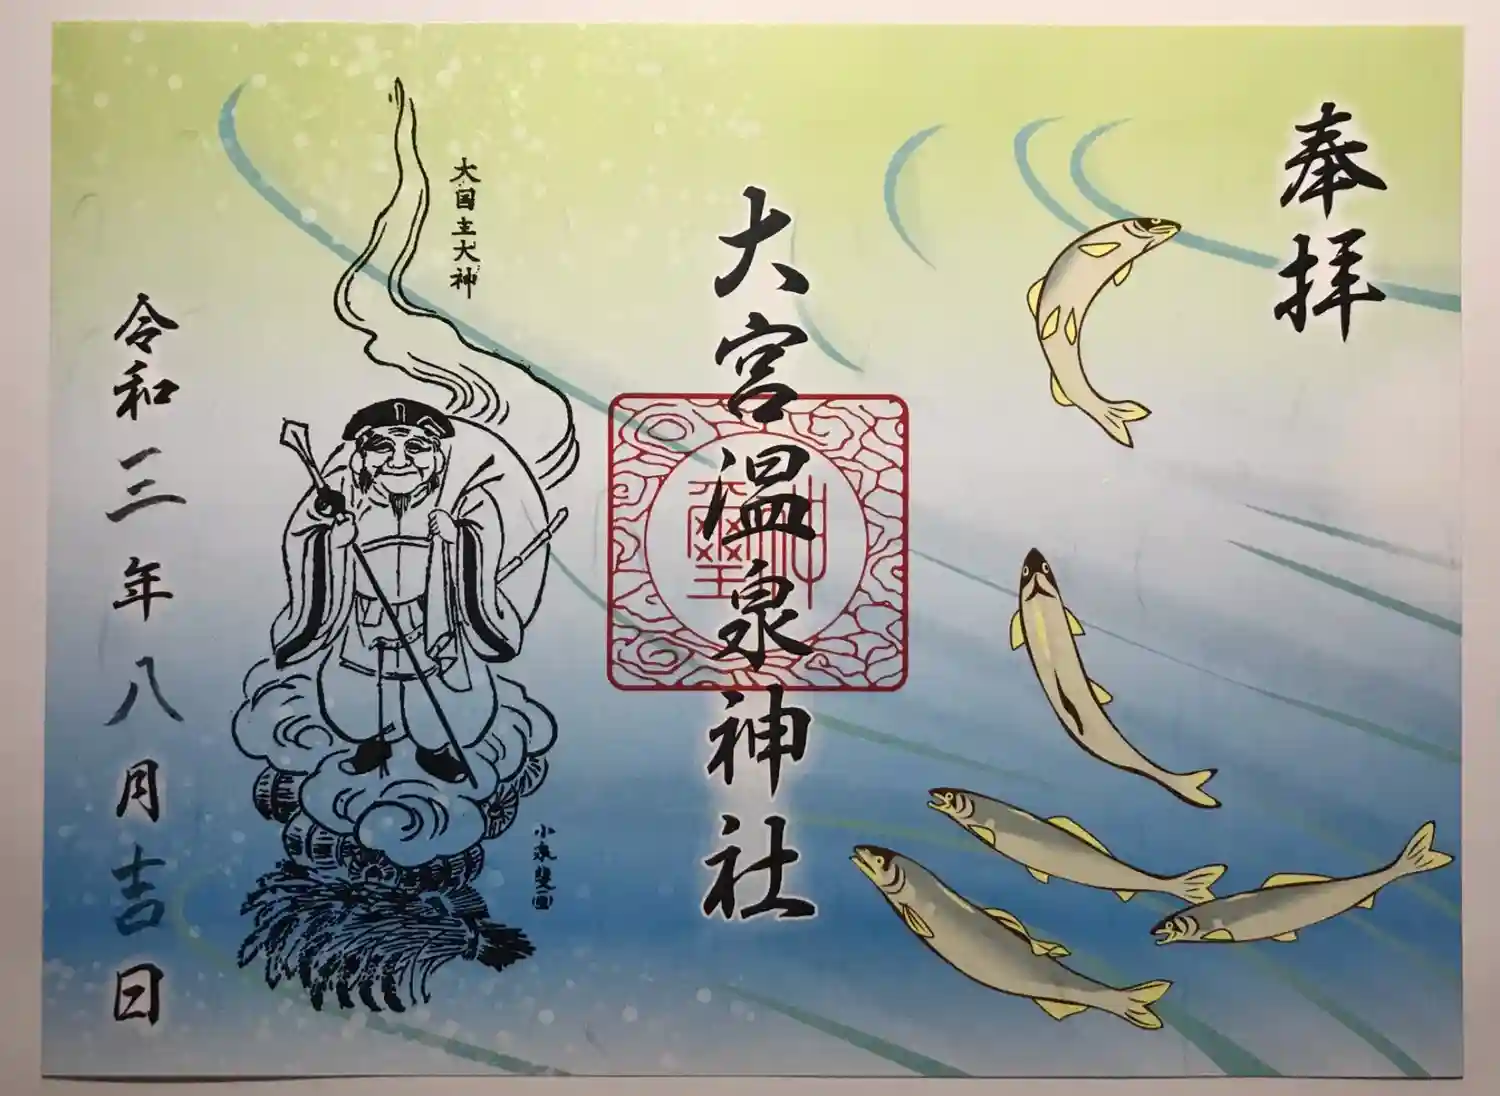 奉拝
大宮温泉神社
神璽
大国主大神
小泉斐圖
令和三年八月吉日